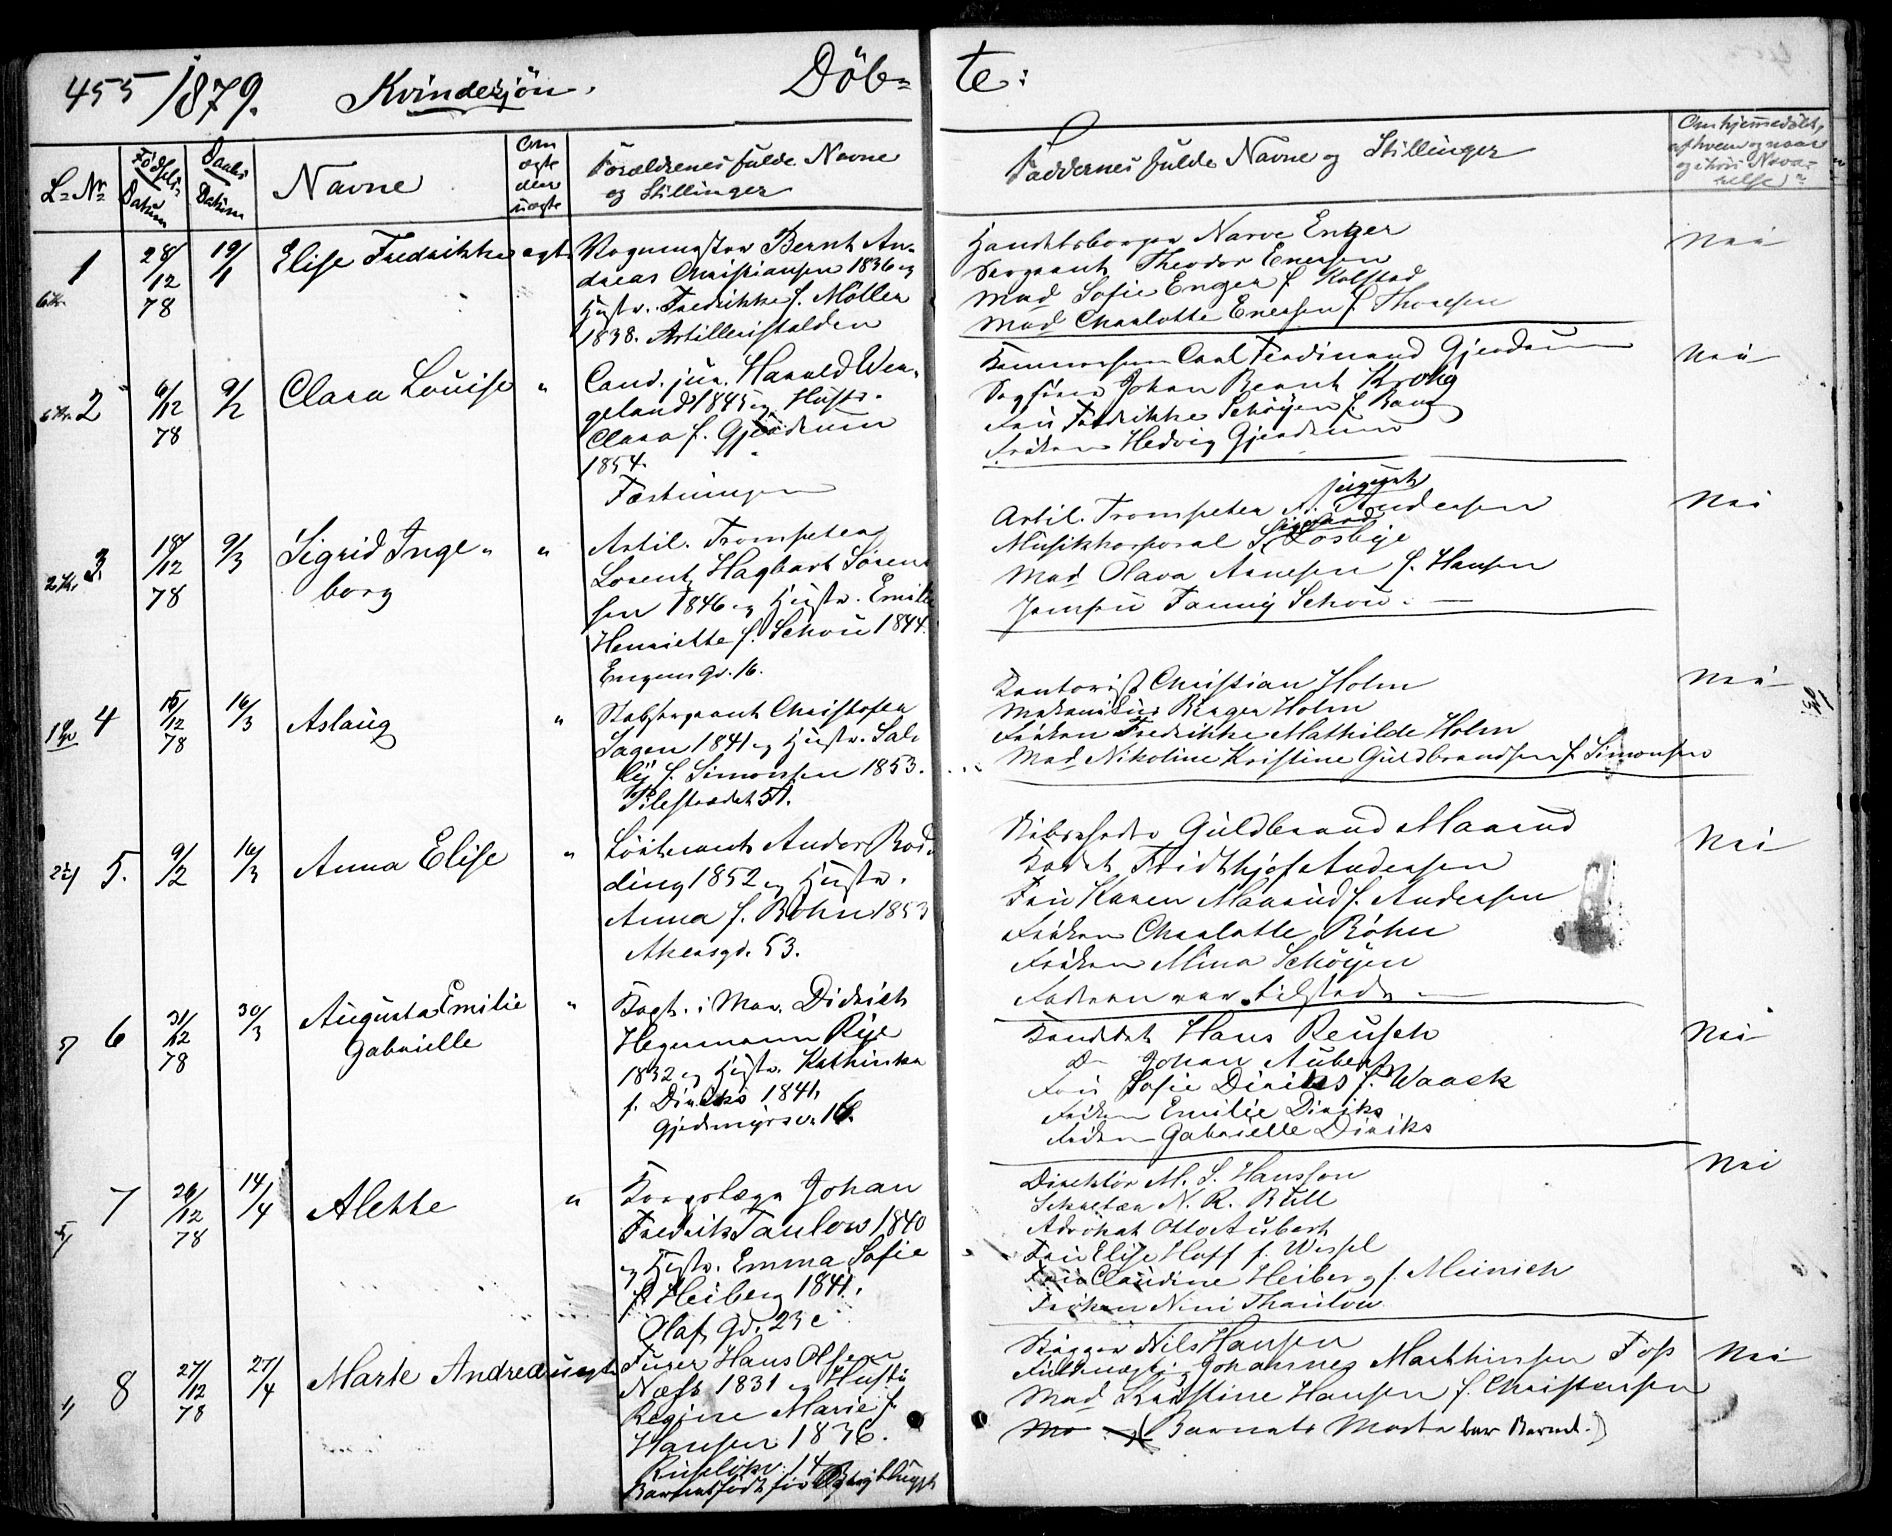 455 1879. Kvindekjön. Döb= te:
L= No Födsels- Datum Daabs Datum Navne Om ægte eller uægte Forældrenes fulde Navne og Stillinger Faddernes fulde Navne og Stillinger Om hjemmedöbt, af hvem og naar
1 28/12 78 19/1 Elise Fredrikke ægt. Vognmester Bernt An-
dreas Christiansen 1836 og
Hustr. Fredrikke f. Möller
1838. Artilleristalden
Handelsborger Narve Enger
Sergeant Theodor Enersen
Mad Sofie Enger f. Kolstad
Mad Charlotte Enersen f. Thoresen
Nei
6 Kr. 2 6/12 78 9/2 Clara Louise " Cand. jur. Harald Wer-
geland 1845 og Hustr.
Clara f. Gjerdrum
1854.
Fæstningen
Carl Ferdinand Gjerdrum
Sagförer Johan Bernt Krohg
Fru Fredrikke Schöyen f. Bang
Fröken Hedvig Gjerdrum
Nei
2 Kr. 3. 18/12 78 9/3 Sigrid Inge-
borg
" Artil. Trompeter
Lorentz Hagbart Sören-
sen 1846 og Hustr. Emilie
Henriette f. Schou 1844.
Engens Gd. 16.
Artil. Trompeter A. Andersen
Musikkorporal S. Losbye
Mad Olava Arnesen f. Hansen
Jomfru Fanny Schou.
Nei
4 15/12 78 16/3 Aslaug " Stabsergeant Christofer
Sagen 1841 og Hustr. Sal-
ly f. Simonsen 1853.
Pilestrædet 51.
Kontorist Christian Holm
Mekanikus Birger Holm
Fröken Fredrikke Mathilde Holm
Mad Nikoline Kristine Guldbrandsen f. Simonsen
Nei
5. 9/2 16/3 Anna Elise " Löitnant Anders Rod-
ding 1852 og Hustr.
Anna f. Röhn 1853
Akersgd. 53.
Skibsreder Guldbrand Maarud
Kadet Fridthjof Andersen
Fru Karen Maarud f. Andersen
Fröken Charlotte Röhn
Fröken Mina Schöyen
Faderen var tilstede
Nei
6 31/12 78 30/3 Augusta Emilie
Gabrielle
" Kapt. i Mar. Didrich
Hegermann Rye
1832 og Hustr. Kathinka
f. Diriks 1841,
Gjedemyrsv. 16.
Kandidat Hans Reusch
D= Johan Aubert
Fru Sofie Diriks f. Waack
Fröken Emilie Diriks
Fröken Gabrielle Diriks
Nei
7 26/12 78 14/4 Alette " Korpslæge Johan
Fredrik Taulow 1840
og Hustr. Emma Sofie
f. Heiberg 1841.
Olafs Gd. 23 c
Direktör M. S. Hansson
Sekretær N. R. Bull
Advokat Otto Aubert
Fru Elise Hoff f. Wessel
Fru Claudine Heiberg f. Meinich
Fröken Nini Thaulow
Nei
8 27/12 78 27/4 Marte Andrea uægt. Furer Hans Olsen
Næss 1831 og Hustr.
Regine Marie f.
Hansen 1836.
Ruselökv: 14
Barnet födt för
Bögger Nils Hansen
Fuldmægtig Johannes Matthiesen Foss
Mad Kristine Hansen f. Christensen
Mo (Barnets Moder bar Barnet.)
Nei